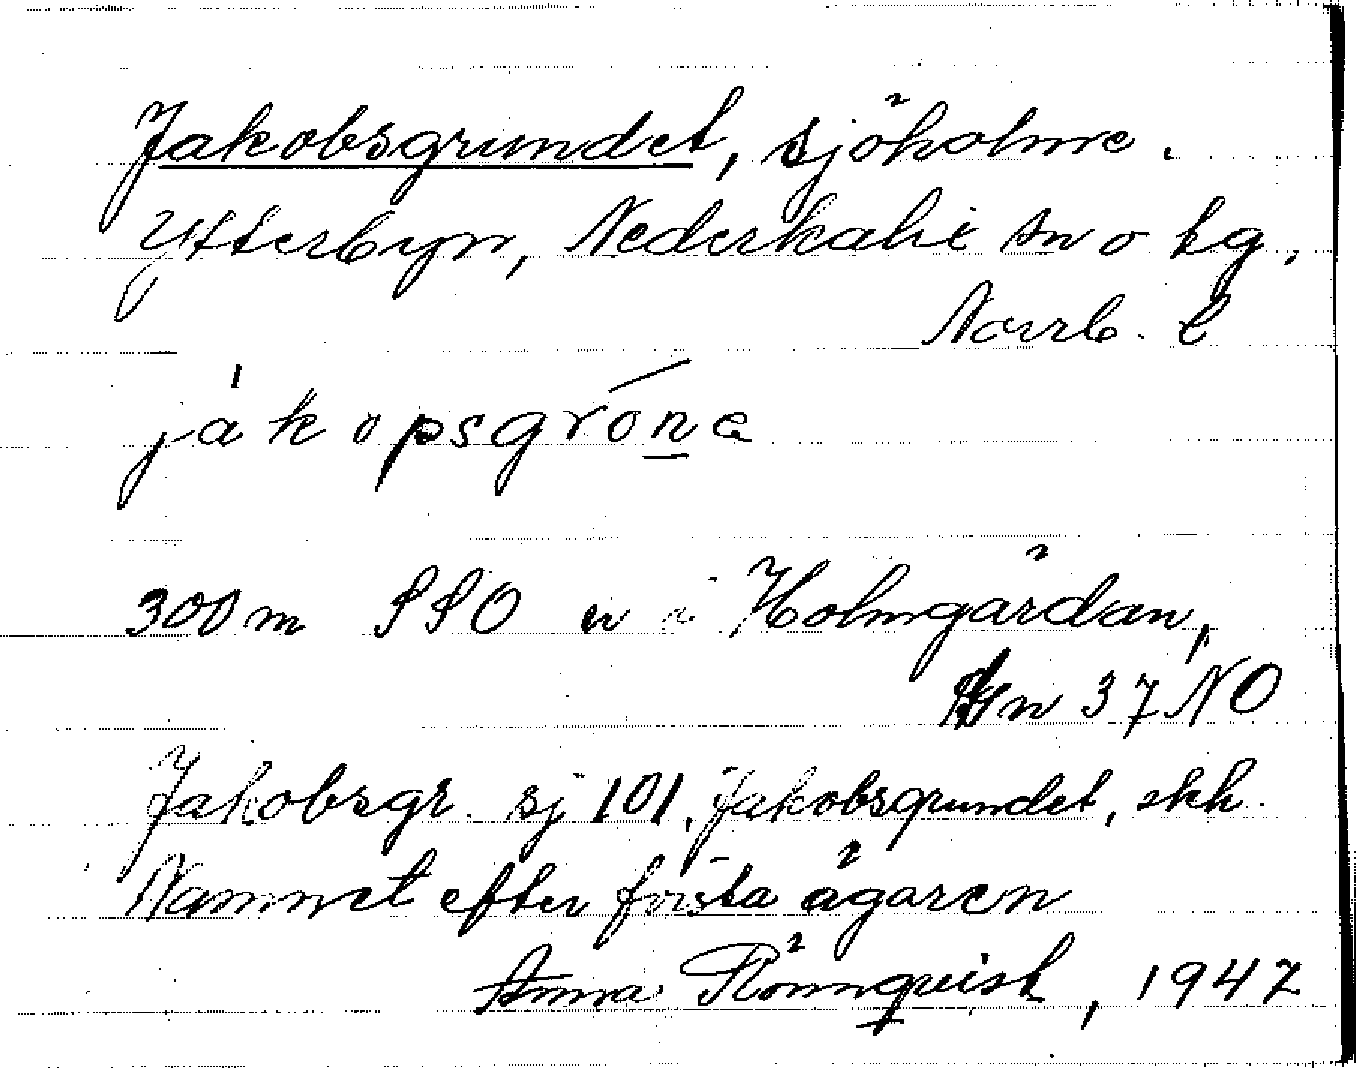 Jakobsgrundet, sjöholme.
Ytterbyn, Nederkalix sn o tg,
Norrb. l
jákopsgróna
300 m SSO Holmgärdan,
37 NO
Jakobsgr. sj 101. Jakobsgrundet, skh.
Namnet efter första ägaren
Anna Rönnqvist, 1947